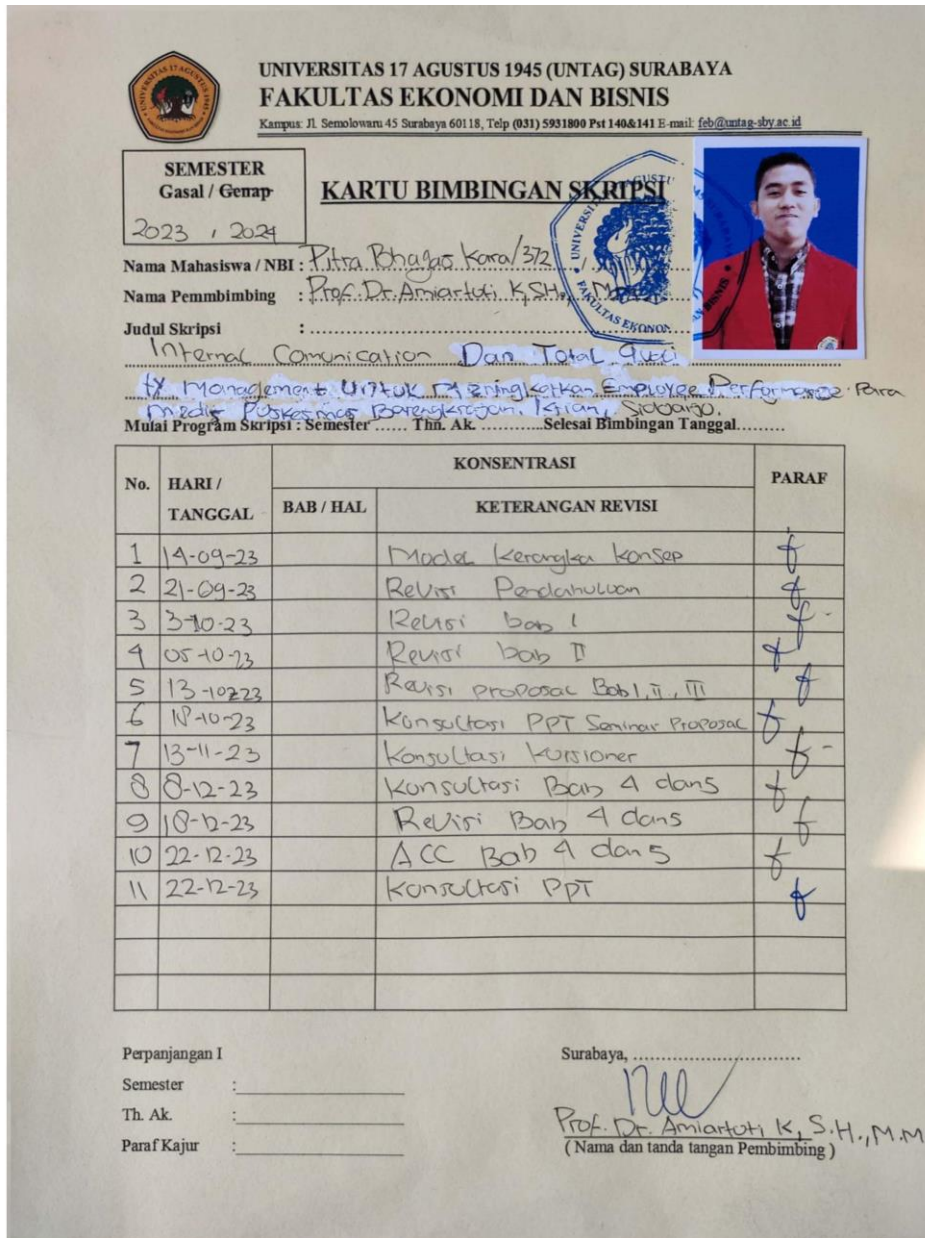 UNIVERSITAS 17 AGUSTUS 1945 (UNTAG) SURABAYA
FAKULTAS EKONOMI DAN BISNIS
Kampus: Jl. Semolowaru 45 Surabaya 60118, Telp (031) 5931800 Pst 140&141 E-mail: feb@untag-sby.ac.id
SEMESTER
Gasal / Genap
2023 , 2024
KARTU BIMBINGAN SKRIPSI
Nama Mahasiswa / NBI : Pitra Bhagas Kara/372
Nama Pemmbimbing : Prof. Dr. Amiartuti, K,SH.,
Judul Skripsi :
Internal Comunication Dan Total Quali
ty Management Untuk Meningkatkan Employee Performance Para
medis Puskesmas Barengkrajan, Krian, Sidoarjo.
Mulai Program Skripsi : Semester ...... Thn. Ak. ............Selesai Bimbingan Tanggal.........
No. HARI / TANGGAL KONSENTRASI PARAF
BAB / HAL KETERANGAN REVISI
1 14-09-23 Model Kerangka Konsep
2 21-09-23 Revisi Pendahuluan
3 3-10-23 Revisi bab I
4 05-10-23 Revisi bab II
5 13-10-23 Revisi proposal Bab I, II, III
6 18-10-23 Konsultasi PPT Seminar Proposal
7 13-11-23 Konsultasi Kuisioner
8 8-12-23 Konsultasi Bab 4 dan 5
9 18-12-23 Revisi Bab 4 dan 5
10 22-12-23 ACC Bab 4 dan 5
11 22-12-23 Konsultasi PPT
Perpanjangan I
Semester :
Th. Ak. :
Paraf Kajur :
Surabaya, ..............................
Prof. Dr. Amiartuti K, S.H., M.M
( Nama dan tanda tangan Pembimbing )